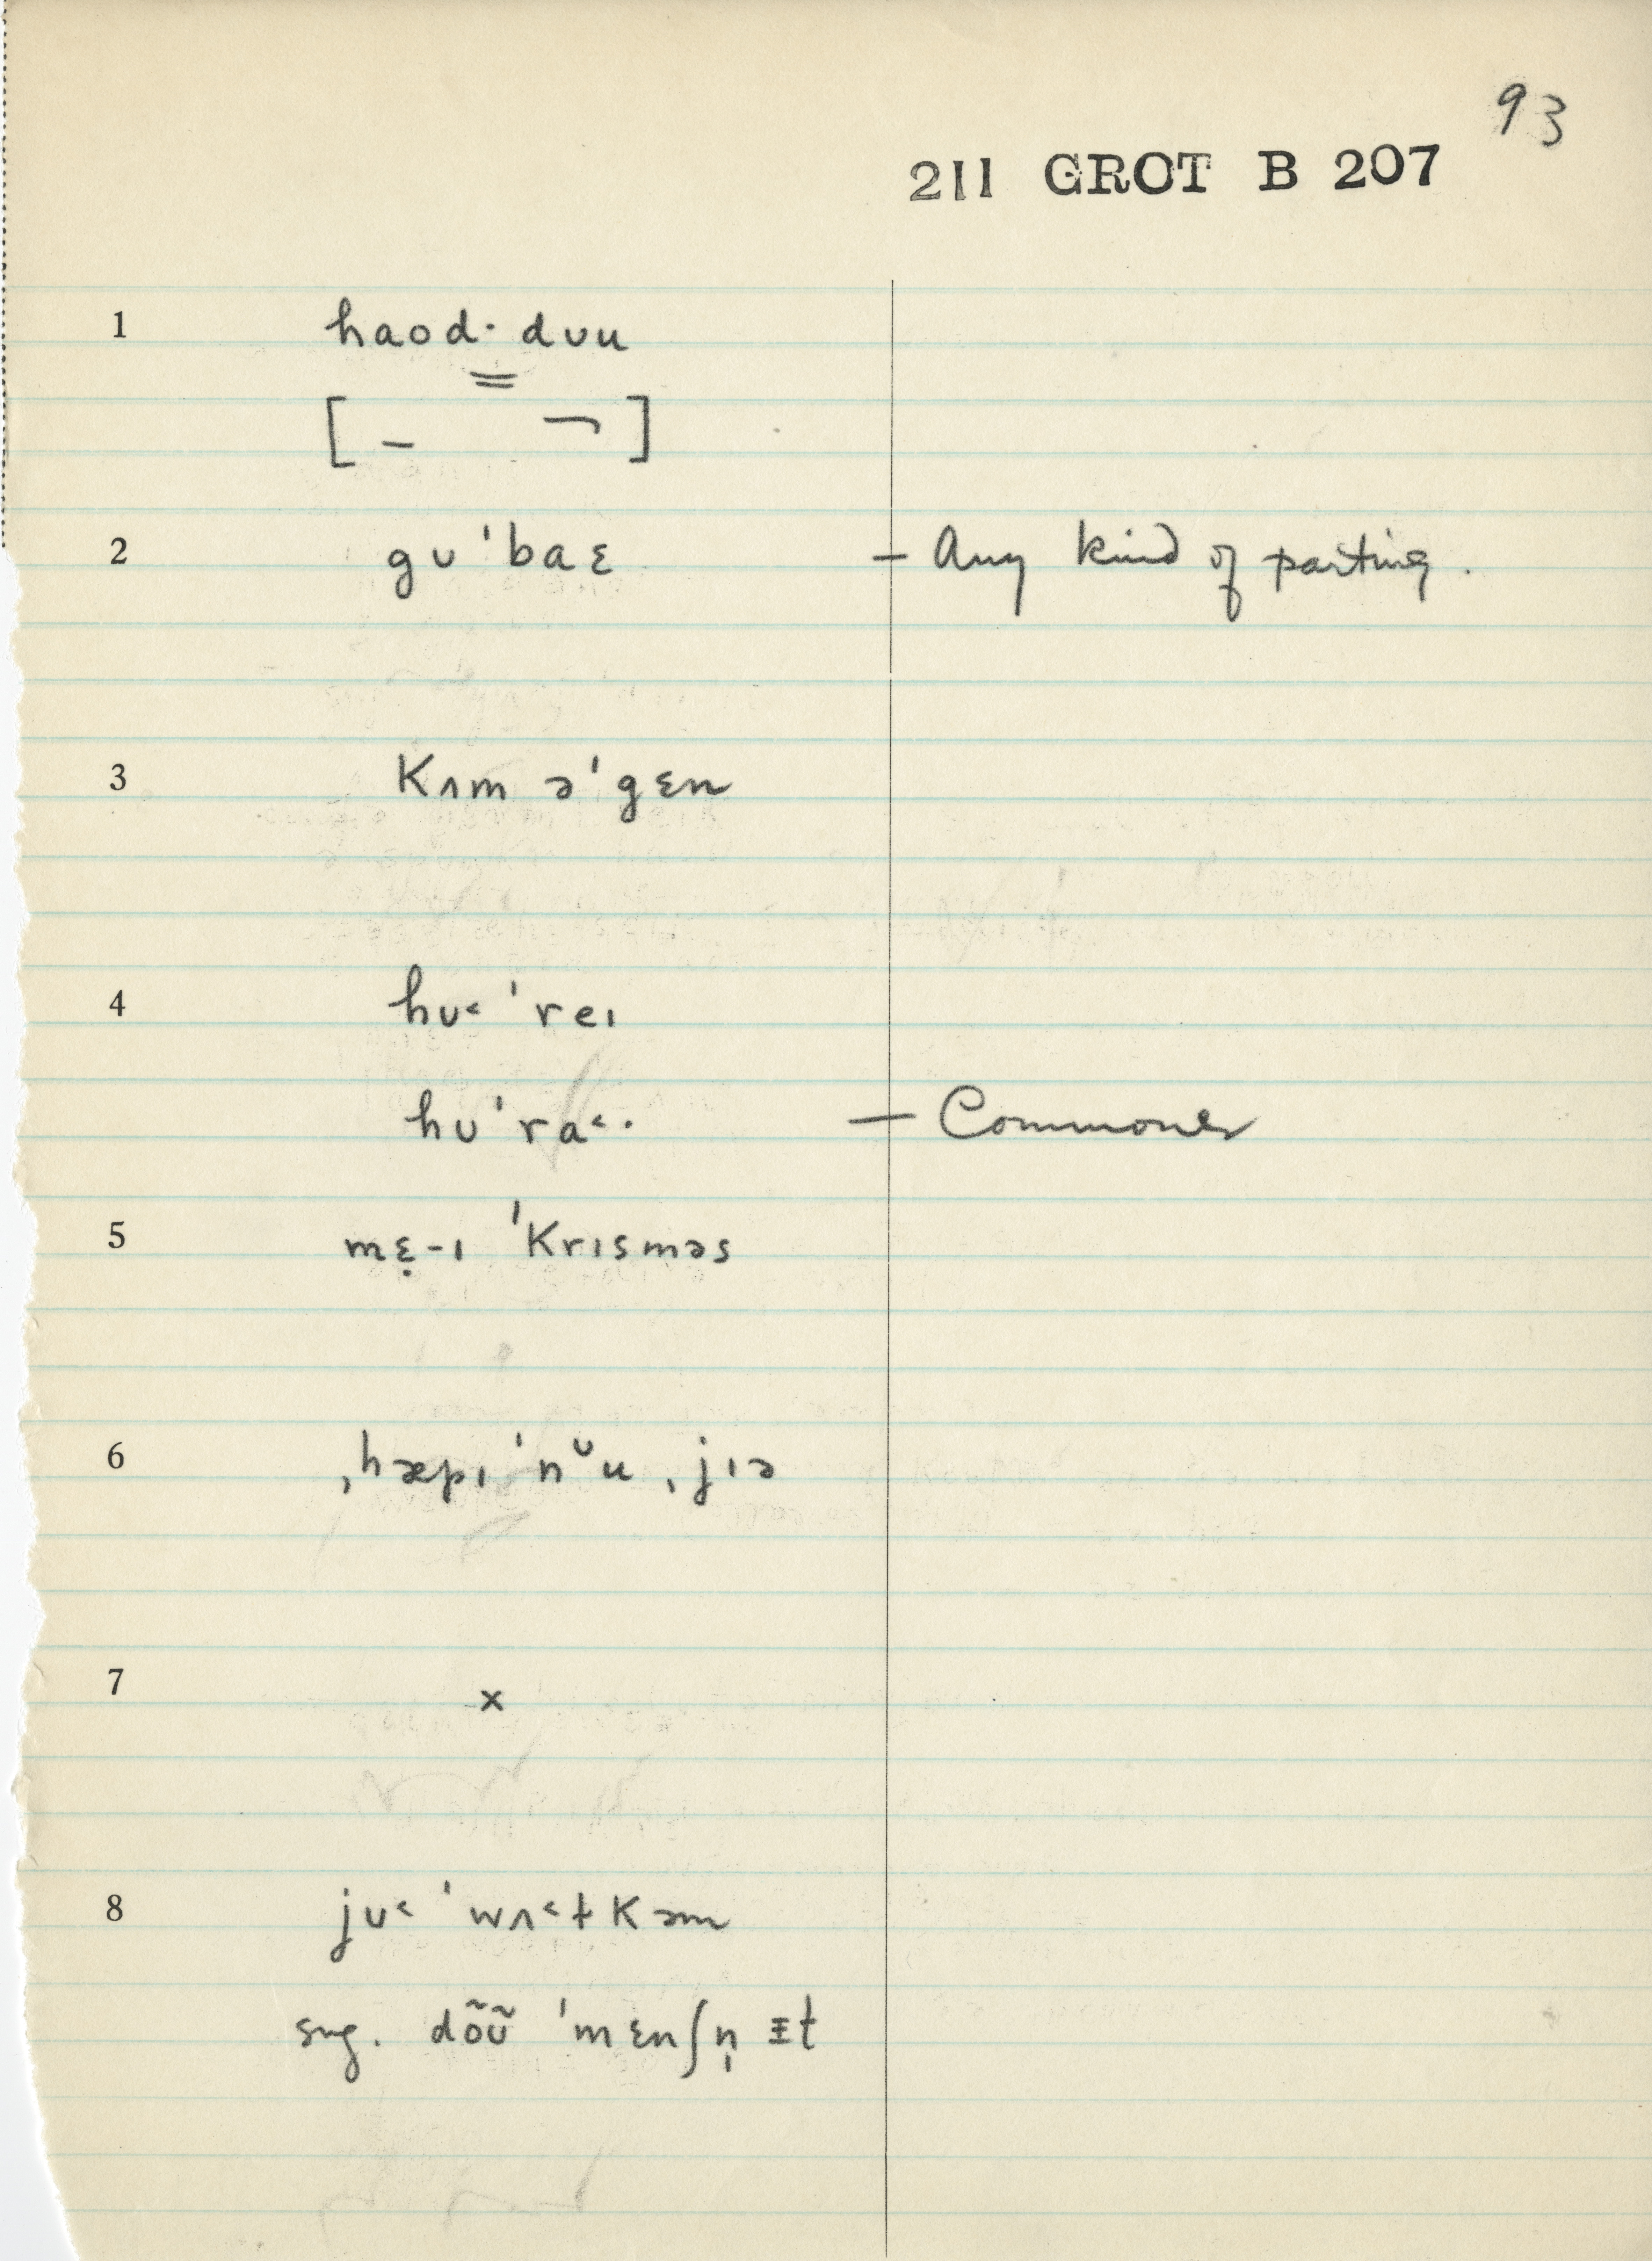 93
211 GROT B 207
1 haod· dʊu
[ – ¬ ]
2 gʊˈbaɛ – Any kind of parting.
3 kʌm əˈgɛn
4 hʊ˂ ˈreɪ
hʊˈra˂· – Commoner
5 mɛ̣-ɪ ˈkrɪsməs
6 ˌhæpɪ ˈnᵕu ˌjɪə
7 x
8 jʊ˂ ˈwʌ˂ɫkəm
sug. dõʊ̃ ˈmɛnʃn̩ ɪ̵t